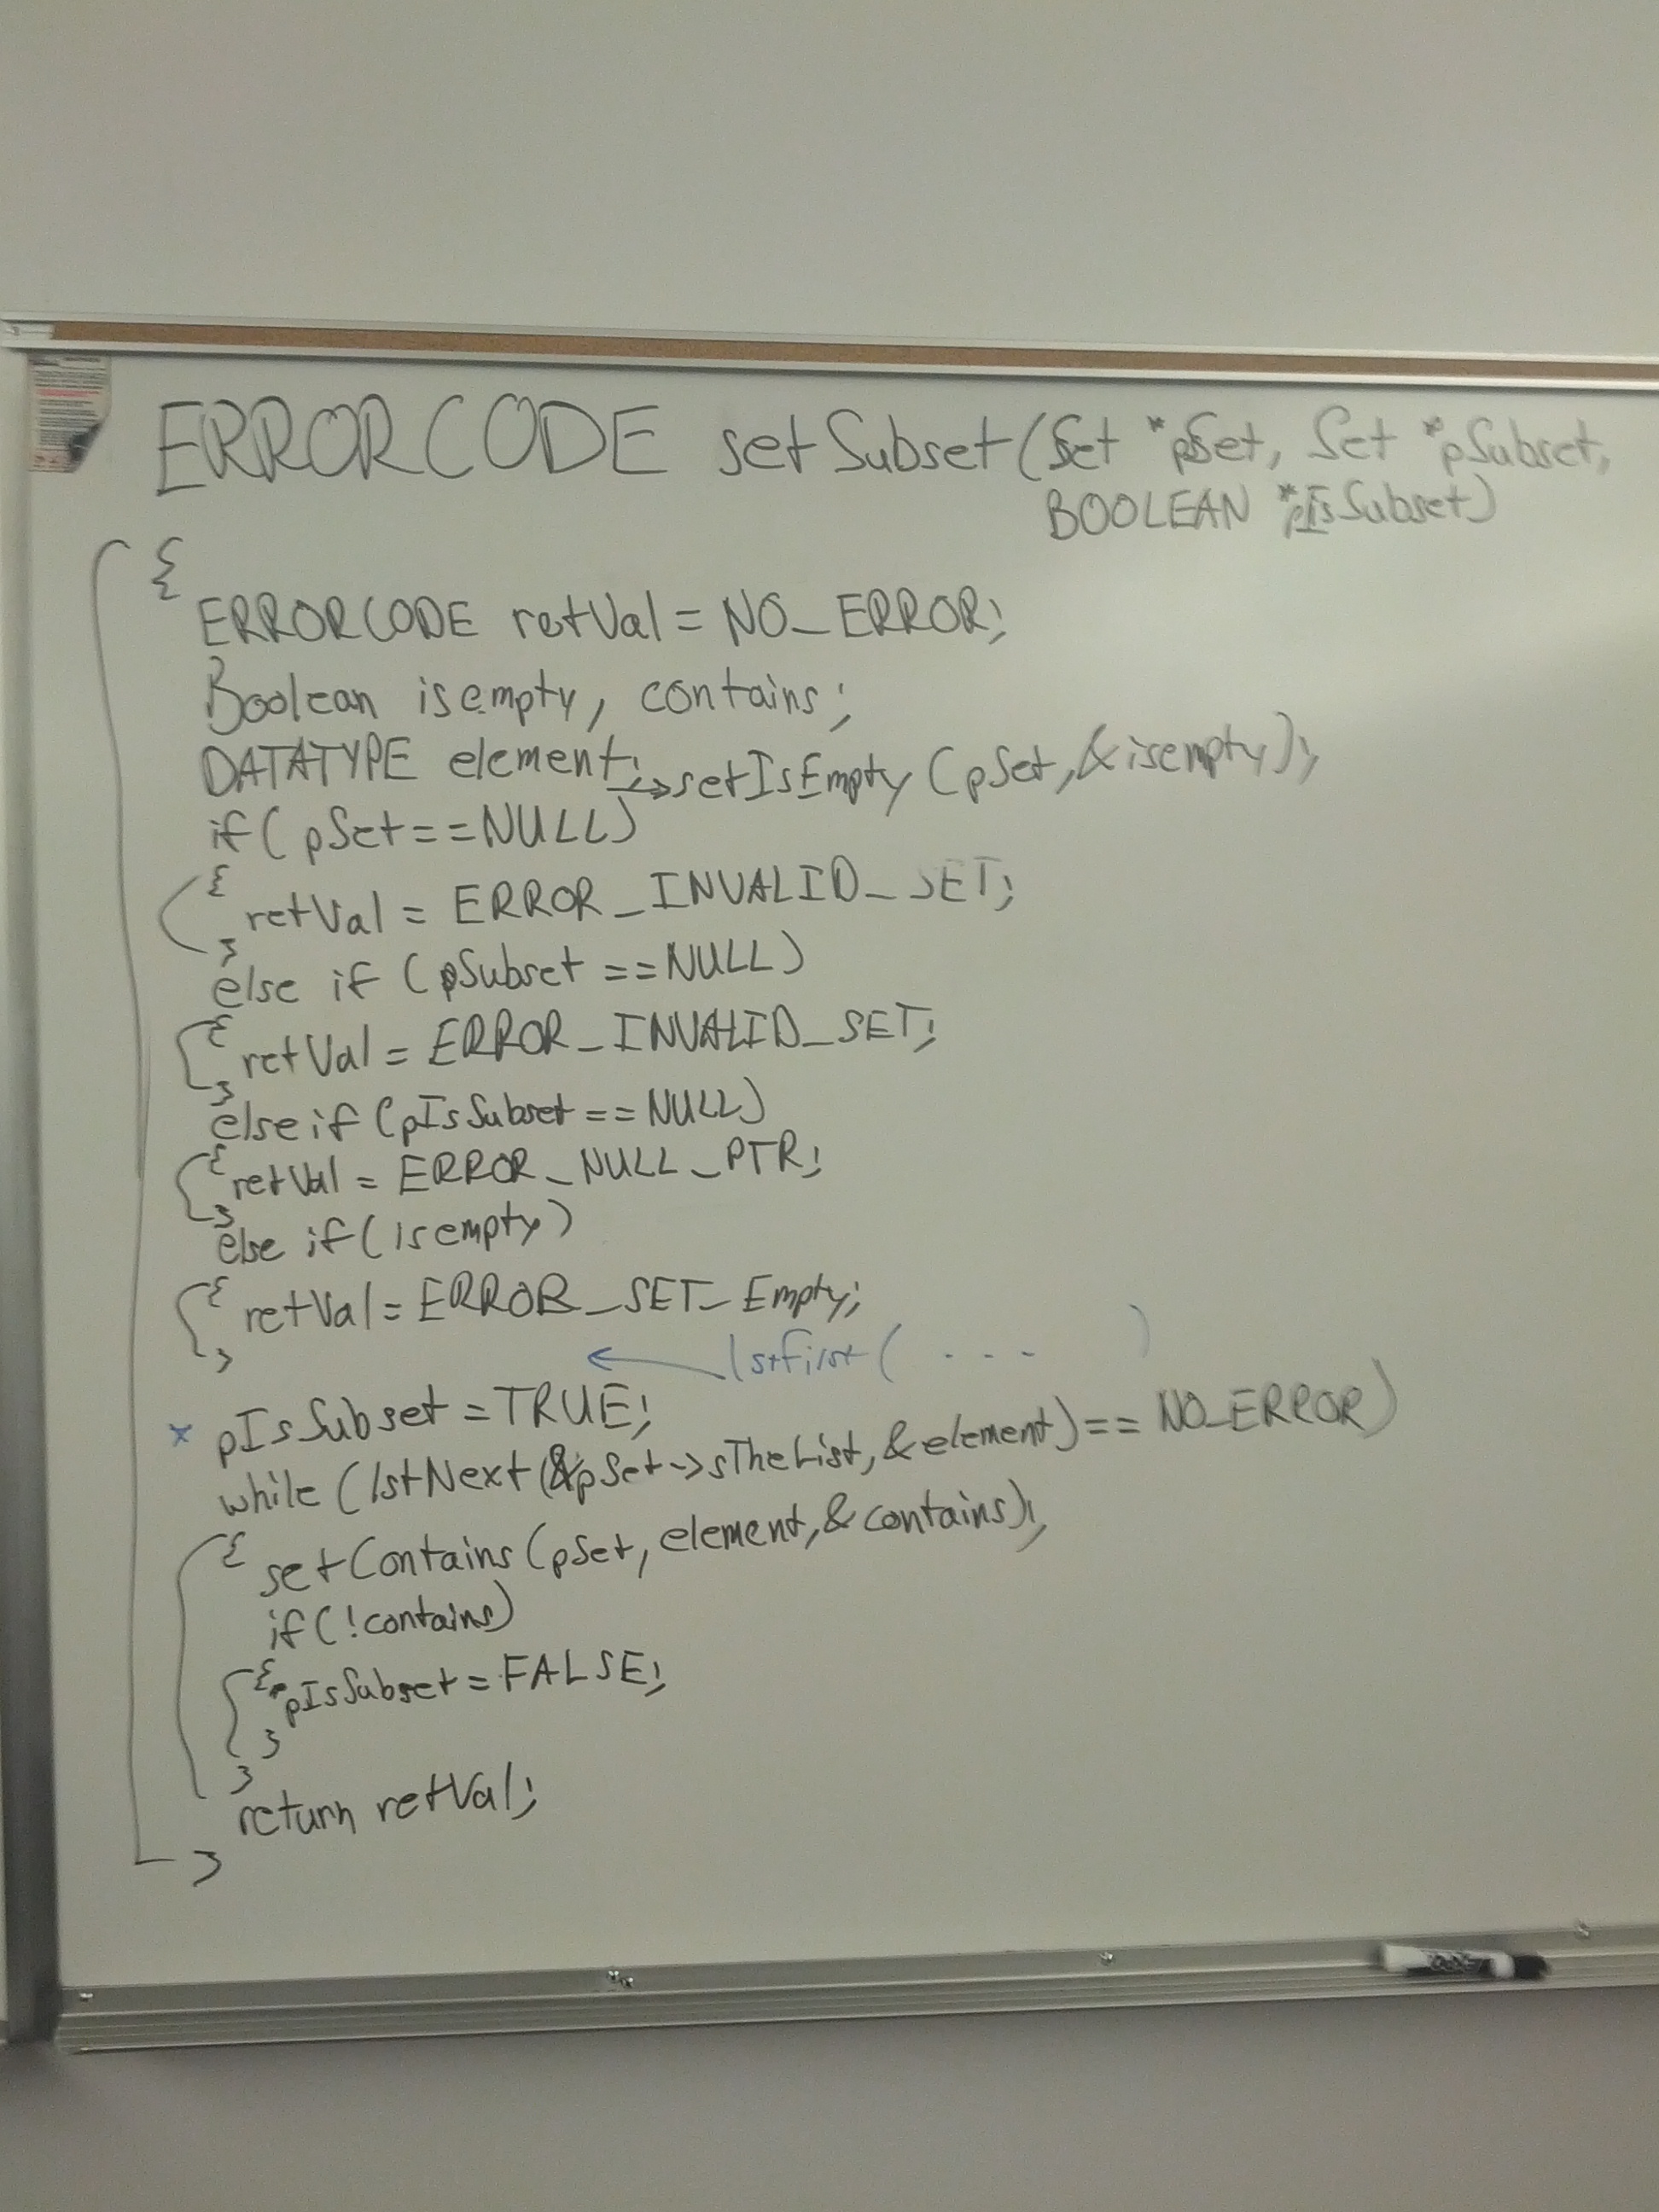 ERRORCODE setSubset(Set *pSet, Set *pSubset,
BOOLEAN *pIsSubset)
{
ERRORCODE retVal = NO_ERROR;
Boolean isempty, contains;
DATATYPE element;
→setIsEmpty(pSet, &isempty);
if(pSet==NULL)
{
retVal = ERROR_INVALID_SET;
}
else if (pSubset ==NULL)
{
retVal = ERROR_INVALID_SET;
}
else if (pIsSubset == NULL)
{
retVal = ERROR_NULL_PTR;
}
else if(isempty)
{
retVal = ERROR_SET_Empty;
}
← lstFirst( ... )
* pIsSubset = TRUE;
while (lstNext(&pSet->sTheList, &element) == NO_ERROR)
{
setContains(pSet, element, &contains);
if(!contains)
{
*pIsSubset = FALSE;
}
}
return retVal;
}